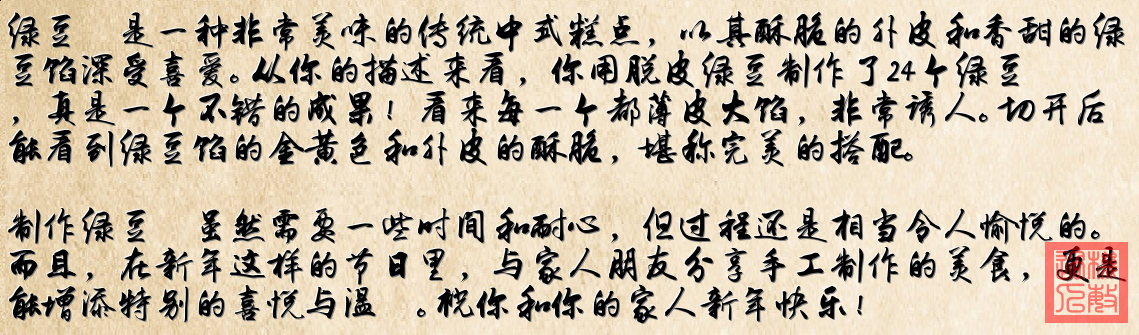 绿豆　是一种非常美味的传统中式糕点，以其酥脆的外皮和香甜的绿
豆馅深受喜爱。从你的描述来看，你用脱皮绿豆制作了24个绿豆
，真是一个不错的成果！看来每一个都薄皮大馅，非常诱人。切开后
能看到绿豆馅的金黄色和外皮的酥脆，堪称完美的搭配。
制作绿豆　虽然需要一些时间和耐心，但过程还是相当令人愉悦的。
而且，在新年这样的节日里，与家人朋友分享手工制作的美食，更是
能增添特别的喜悦与温　。祝你和你的家人新年快乐！